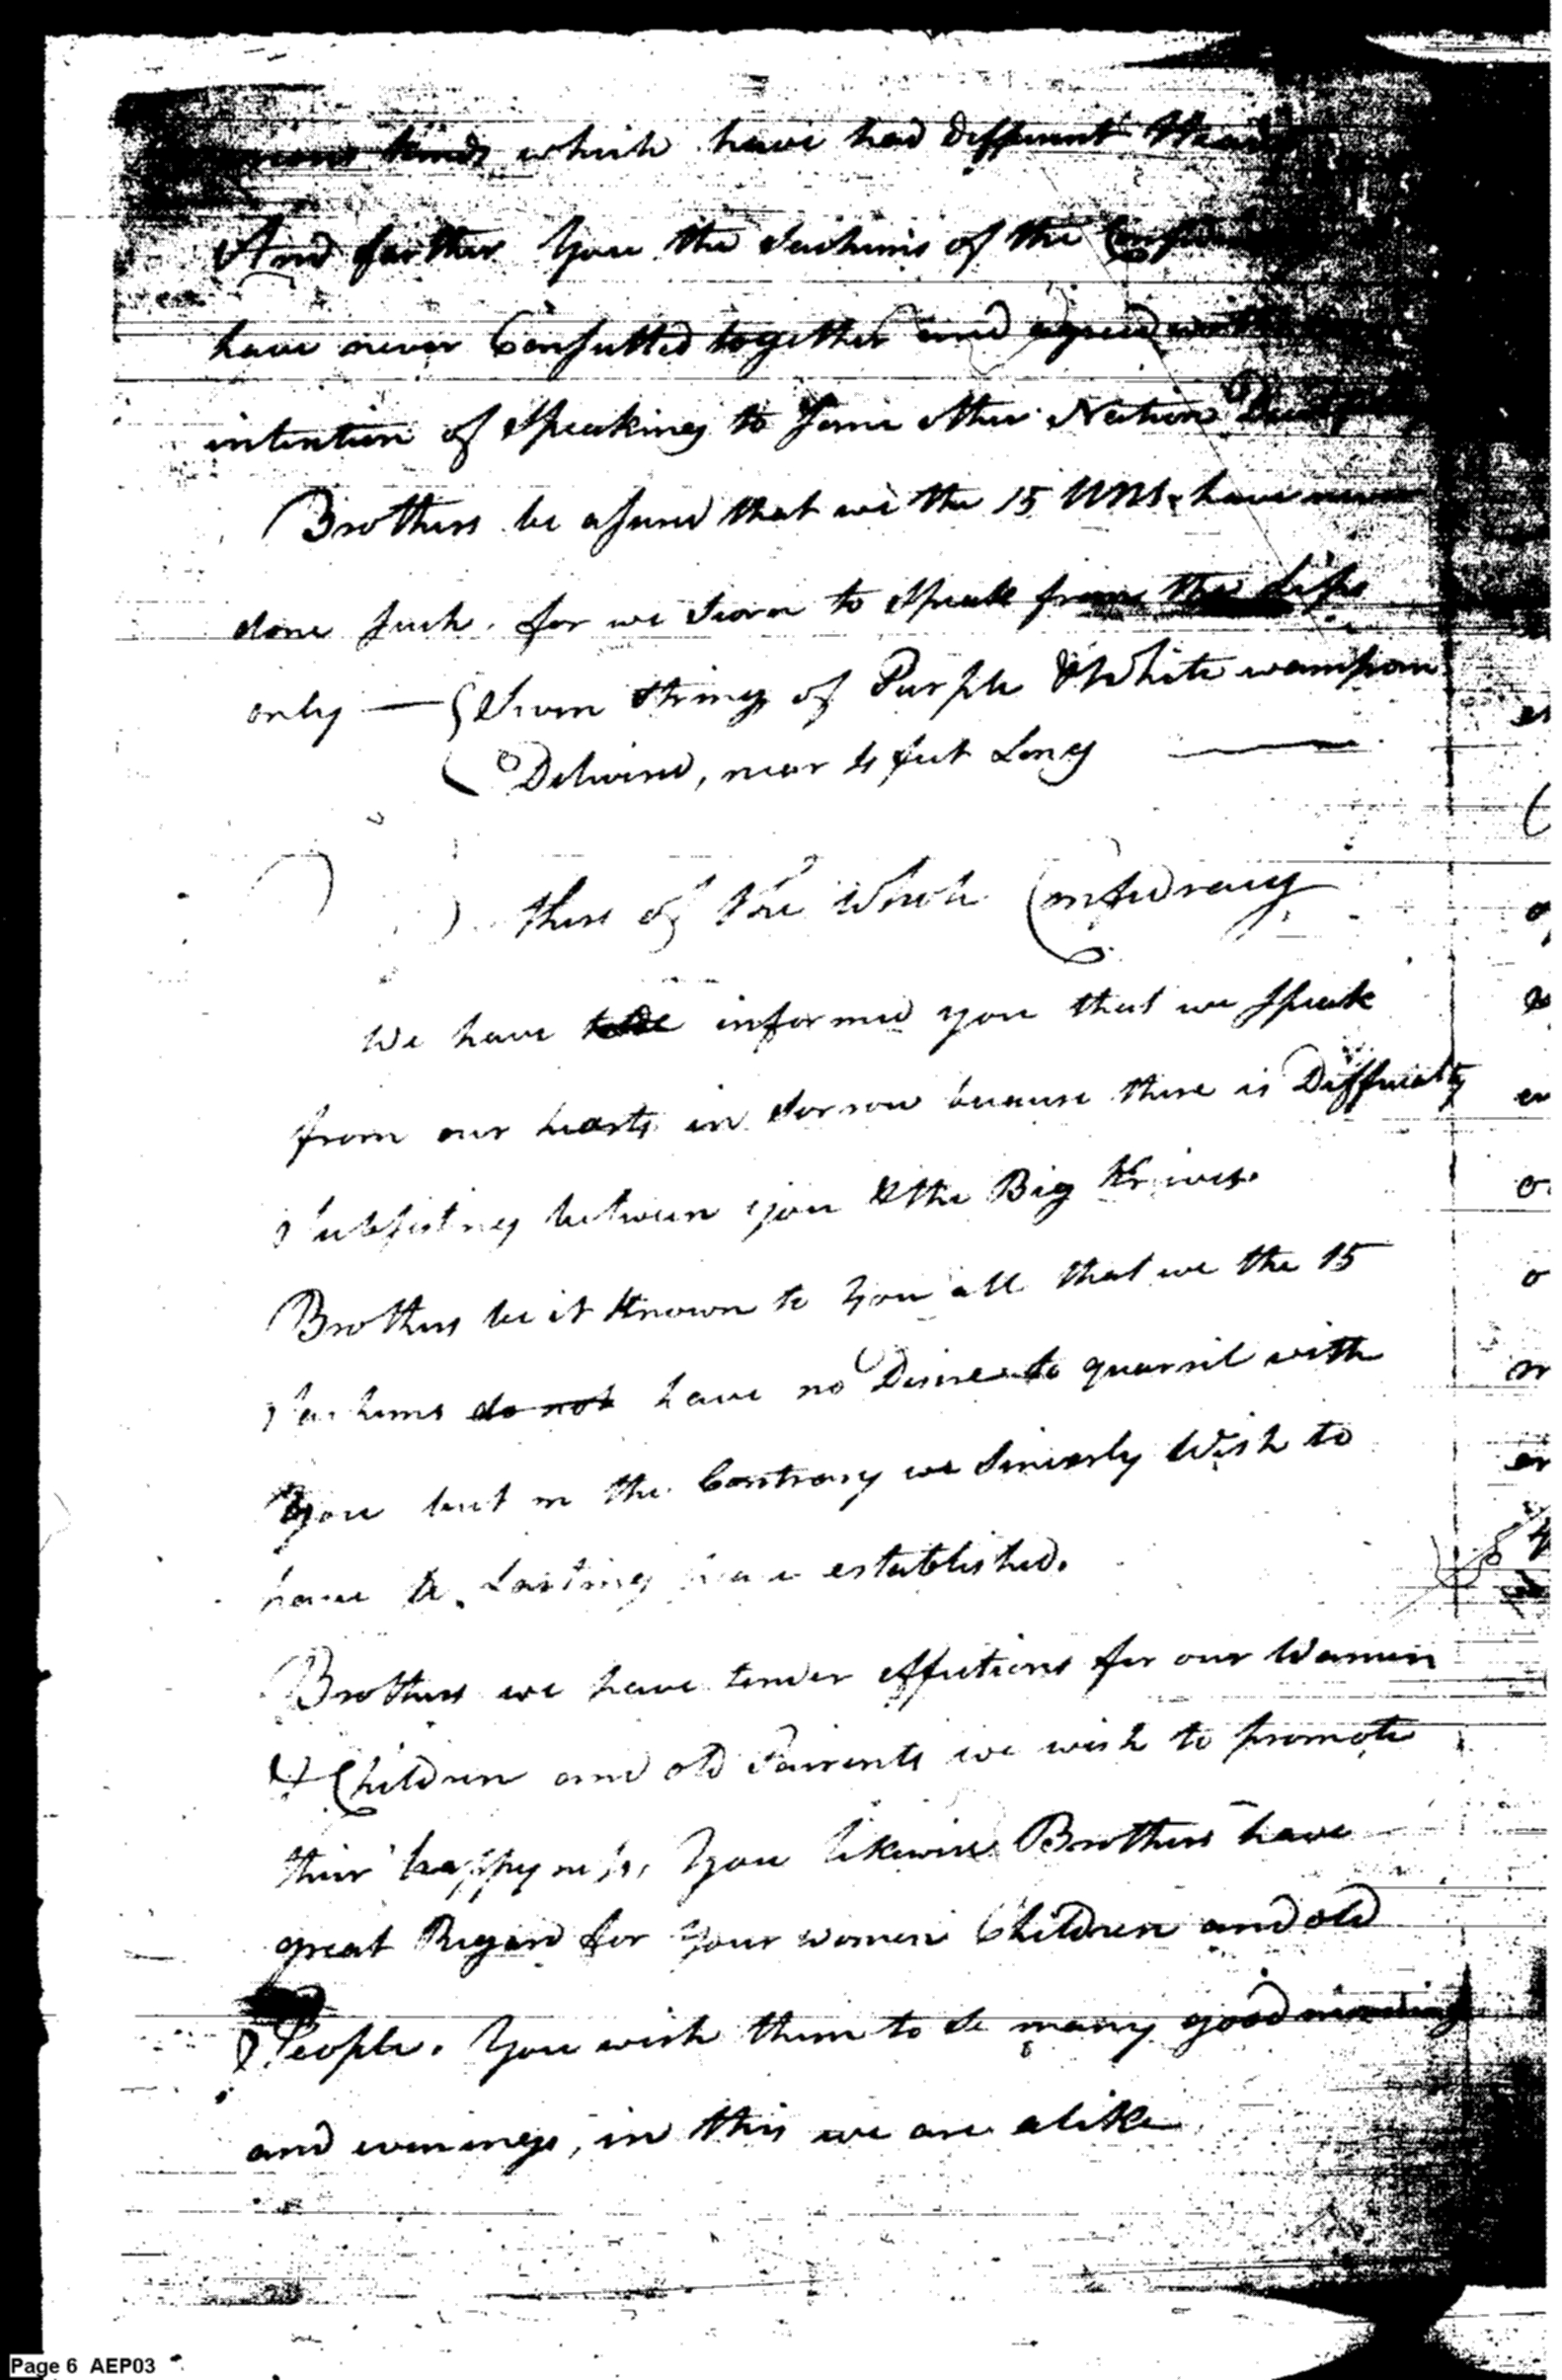 which have had different
And farther You the Sachims of the
have never Consulted together and agreed
intention of Speaking to Some other Nation
Brothers be asured that we the 15 UNS. have never
done such. for we Scorn to Speak from the Lips
only — Seven strings of Purple & White wampom
Deliverd, near 4 feet Long
thers of the Whole Confedracy
We have informed you that we Speak
from our hearts in sorrow because there is Difficulty
Subsisting between you & the Big Knives.
Brothers be it Known to You all that we the 15
Sachims do not have no Desire to quarril with
You but on the Contrary we Sincerly Wish to
have a Lasting established.
Brothers we have tender affections for our Women
& Children and old Pairents we wish to promote
their happyness, You likewise Brothers have
great Regard for Your women Children and old
People. You wish them to se many good
and evenings, in this we are alike
Page 6 AEP03